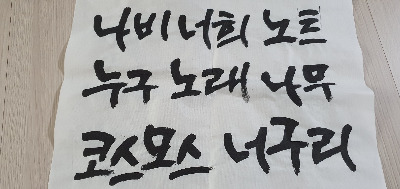 나비 너희 노트
누구 노래 나무
코스모스 너구리